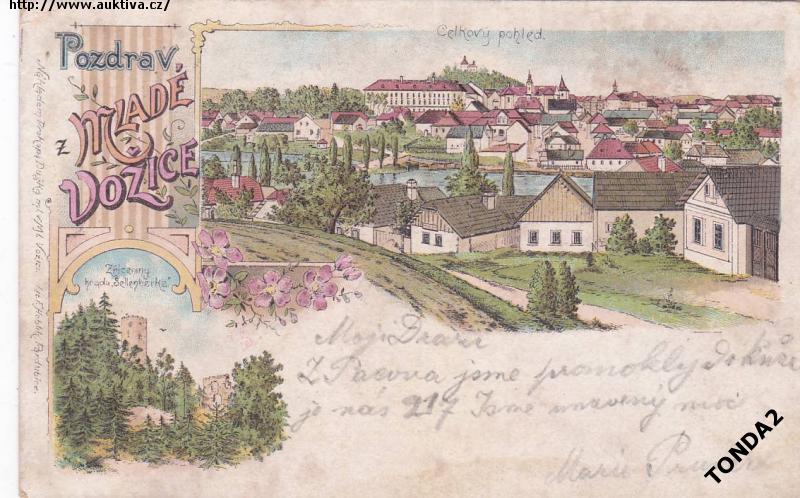 http://www.auktiva.cz/
Pozdrav
z MLADÉ
VOŽICE
Celkový pohled.
Zříceniny
hradu „Šelenberka"
Moji Drazí
Z Pacova jsme promokly do kůže
je nás 27 Jsme unaveny moc
Marie
TONDA2